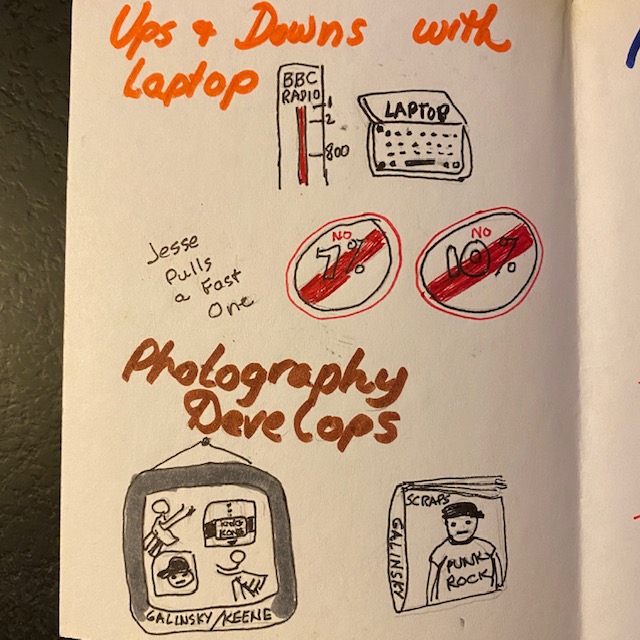 Ups & Downs with
Laptop
BBC
RADIO
1
2
800
LAPTOP
Jesse
Pulls
a Fast
One
NO
7%
NO
10%
Photography
Develops
GALINSKY/KEENE
SCRAPS
GALINSKY
PUNK
ROCK